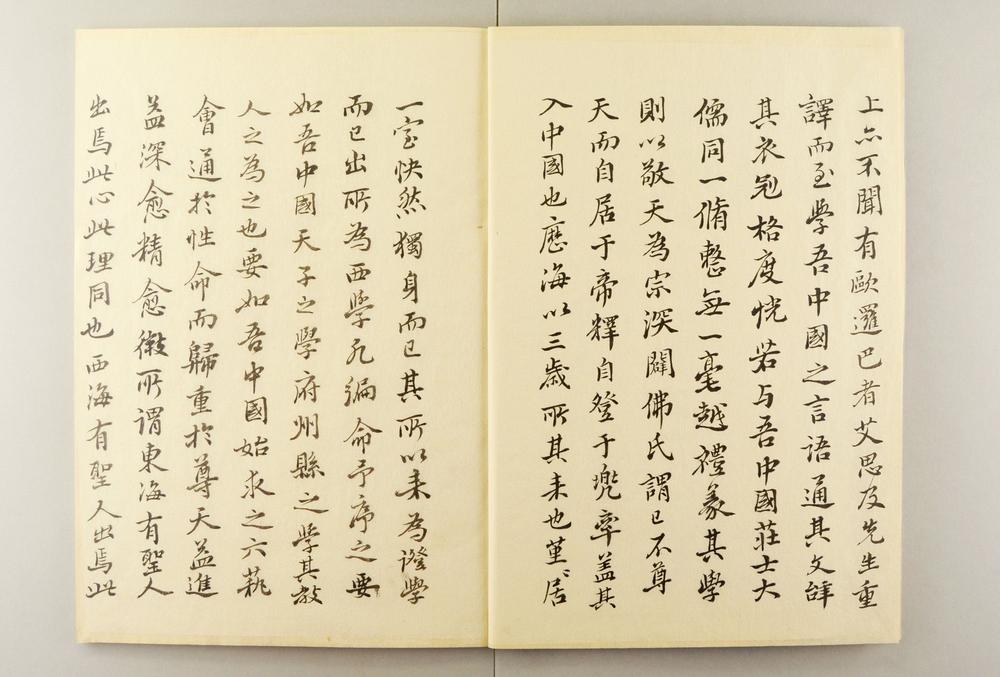 上亦不聞有歐邏巴者艾思及先生重
譯而至學吾中國之言語通其文辭
其衣冠格度恍若与吾中國莊士大
儒同一脩整無一毫越禮義其學
則以敬天為宗深闢佛氏謂已不尊
天而自居于帝釋自登于兜率蓋其
入中國也歷海以三歲所其来也堇〻居
一室怏然獨身而已其所以来為證學
而已出所為西學凡徧命予序之要
如吾中國天子之學府州縣之學其教
人之為之也要如吾中國始求之六蓺
會通於性命而歸重於尊天益進
益深愈精愈微所謂東海有聖人
出焉此心此理同也西海有聖人出焉此